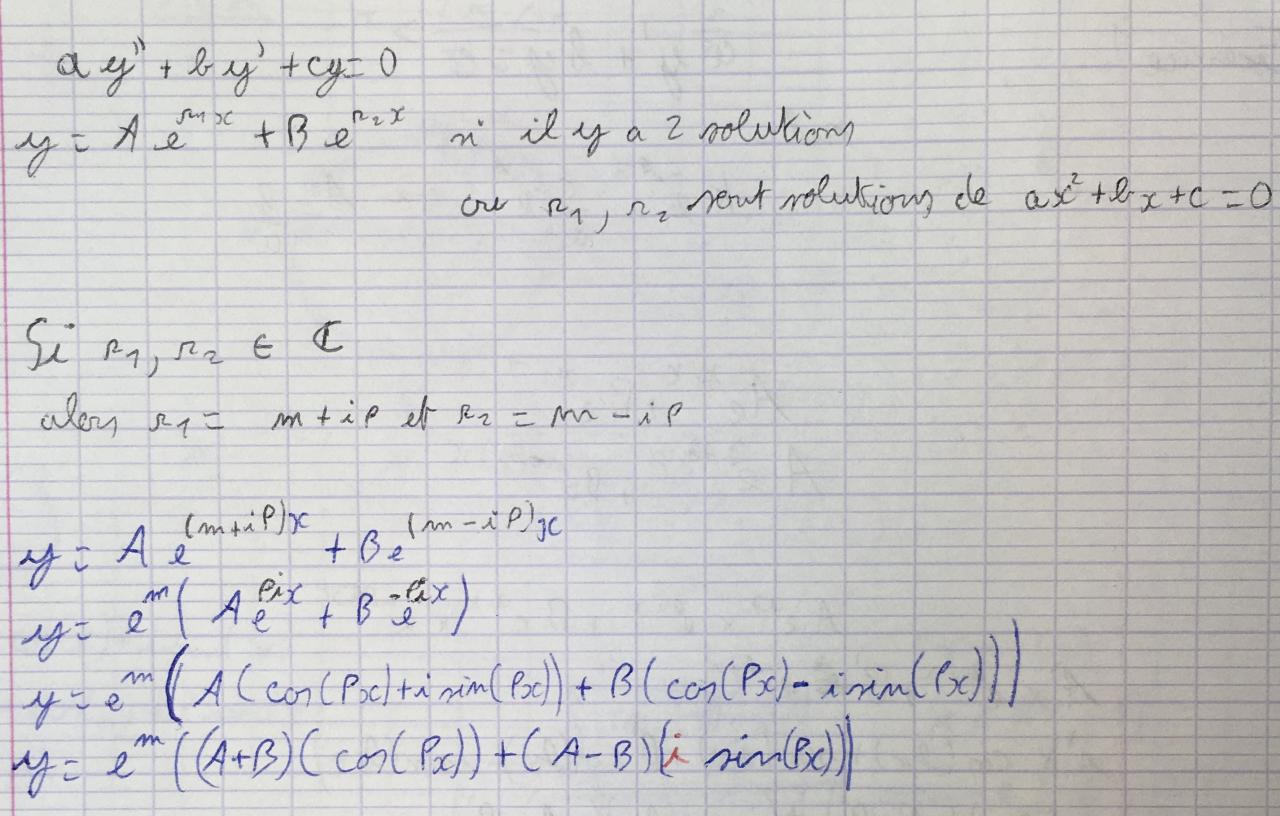 ay'' + by' + cy = 0
y = A e^{r₁x} + B e^{r₂x} si il y a 2 solutions
ou r₁, r₂ sont solutions de ax² + bx + c = 0
Si r₁, r₂ ∈ ℂ
alors r₁ = m + iρ et r₂ = m - iρ
y = A e^{(m+iρ)x} + B e^{(m-iρ)x}
y = e^m ( A e^{ρix} + B e^{-ρix} )
y = e^m ( A ( cos(ρx) + i sin(ρx)) + B ( cos(ρx) - i sin(ρx)))
y = e^m ((A+B)( cos(ρx)) + (A-B)(i sin(ρx)))